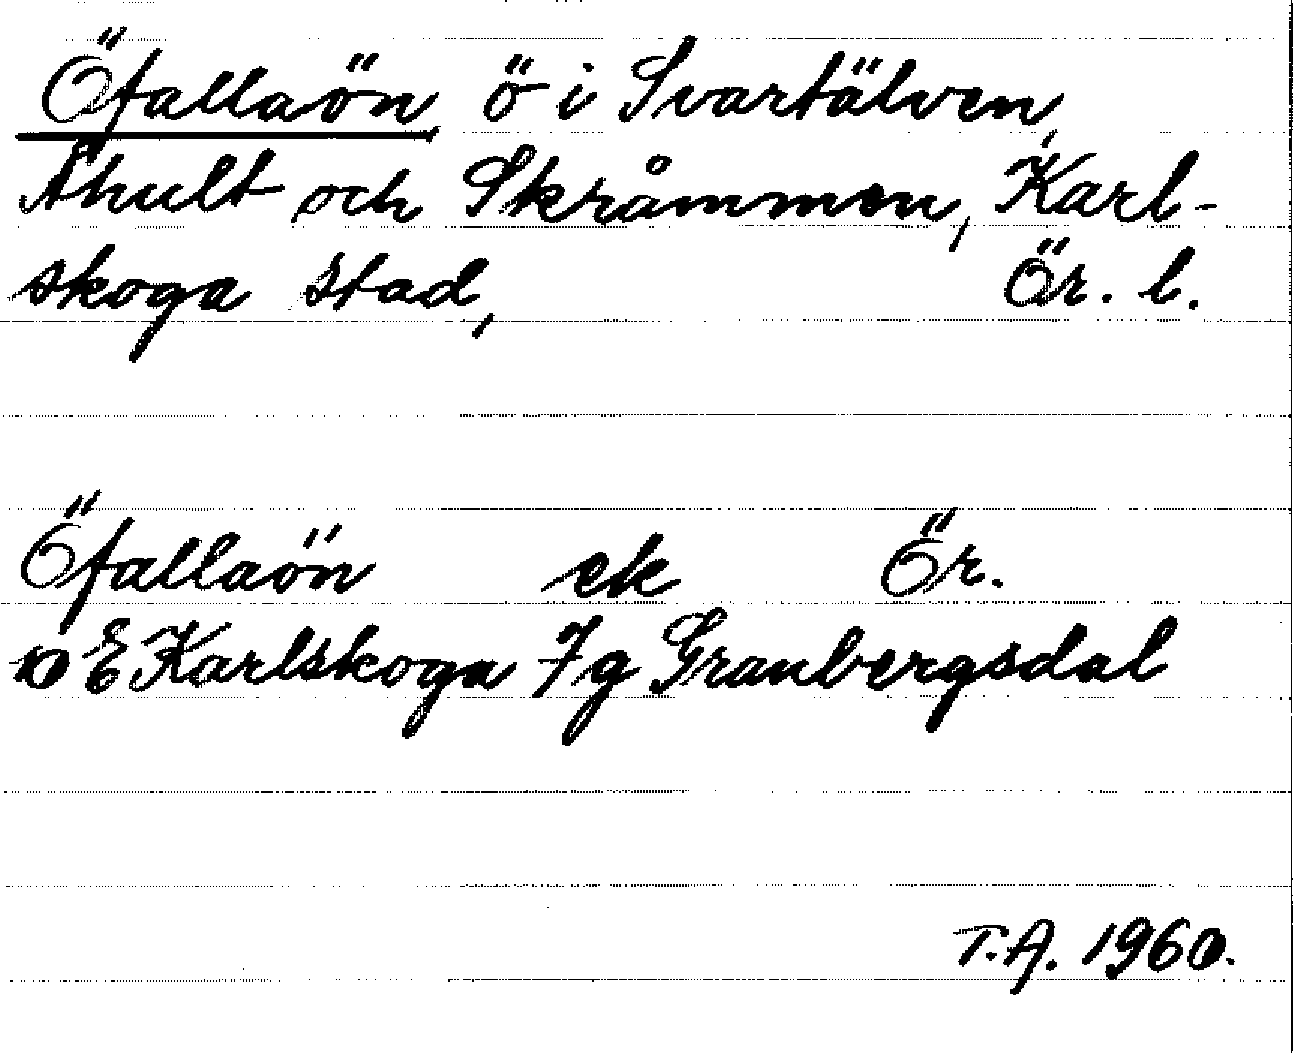 Öfallaön, ö i Svartälven,
Åhult och Skråmmen, Karl-
skoga stad, Ör. l.
Öfallaön ek Ör.
10 E Karlskoga 7g Granbergsdal
T.A. 1960.